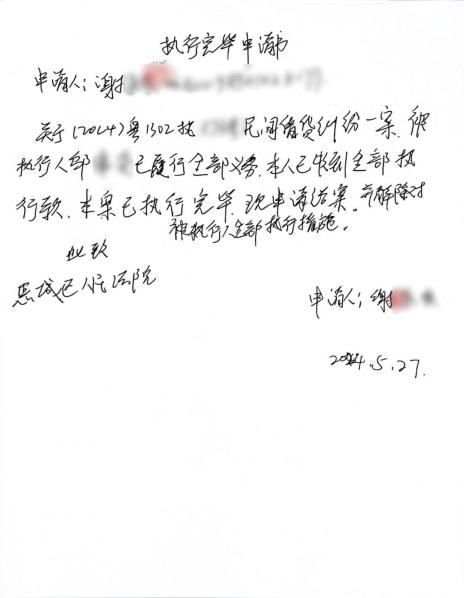 执行完毕申请书
申请人：谢
关于(2024)粤1302执 民间借贷纠纷一案，被
执行人邹 已履行全部义务，本人已收到全部执
行款，本案已执行完毕，现申请结案。并解除对
被执行人全部执行措施。
此致
惠城区人民法院
申请人：谢
2024.5.27.